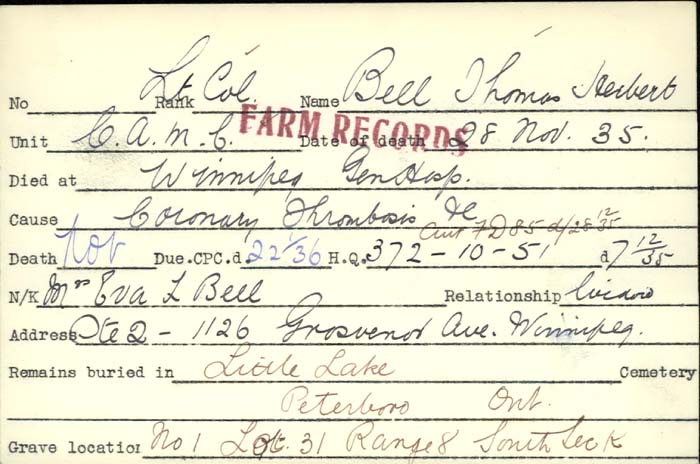 No Rank Lt Col Name Bell Thomas Herbert
FARM RECORDS
Unit C.A.M.C. Date of death 28 Nov. 35.
Died at Winnipeg Gen Hosp.
Cause Coronary Thrombosis &c
Aut 7D85 d/28 12/35
Death not Due.CPC.d 22 1/36 H.Q. 372-10-51 d 7 12/35
N/K Mrs Eva L Bell Relationship Widow
Address Ste 2 - 1126 Grosvenor Ave. Winnipeg.
Remains buried in Little Lake Cemetery
Peterboro Ont.
Grave location No 1 Lot. 31 Range 8 South Sec K